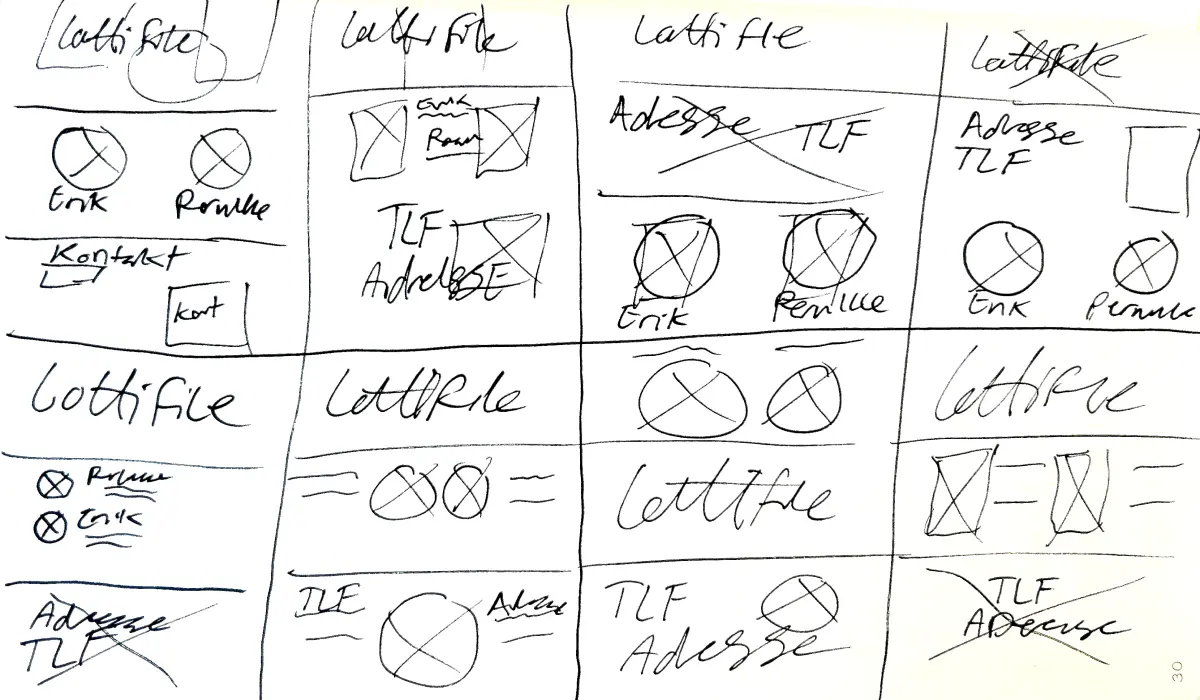 Lotti File
Erik Pernille
Kontakt
Kort
Lotti File
Erik
TLF
Adresse
Lotti File
Adresse TLF
Erik Pernille
Lotti File
Adresse
TLF
Erik Pernille
Lotti File
Erik
Adresse
TLF
Lotti File
TLF Adresse
Lotti File
TLF
Adresse
Lotti File
TLF
Adresse
30